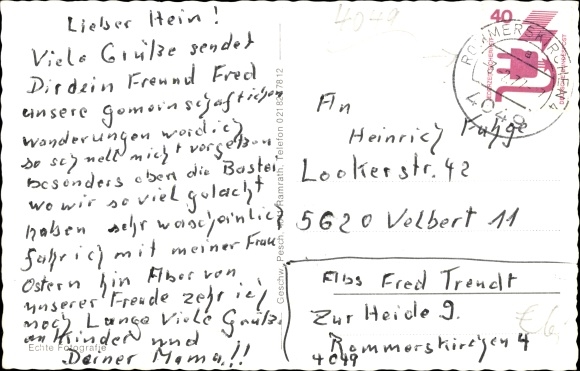 Lieber Hein!
Viele Grüße sendet
Dir dein Freund Fred
unsere gemeinschaftlichen
wanderungen werd ich
so schnell nicht vergeßen
besonders oben die Bastei
wo wir so viel gelacht
haben sehr wascheinlich
fahr ich mit meiner Frau
Ostern hin Aber von
unserer Freude zehr ich
noch Lange Viele Grüße
an Kinder und
Deiner Mama!!
Echte Fotografie
Geschw. Pesch, Ramrath, Telefon 02183/7812
4049
40
ROMMERSKIRCHEN 4
4049
An
Heinrich
Lookerstr. 42
5620 Velbert 11
Abs Fred Trendt
Zur Heide 9.
Rommerskirchen 4
4049